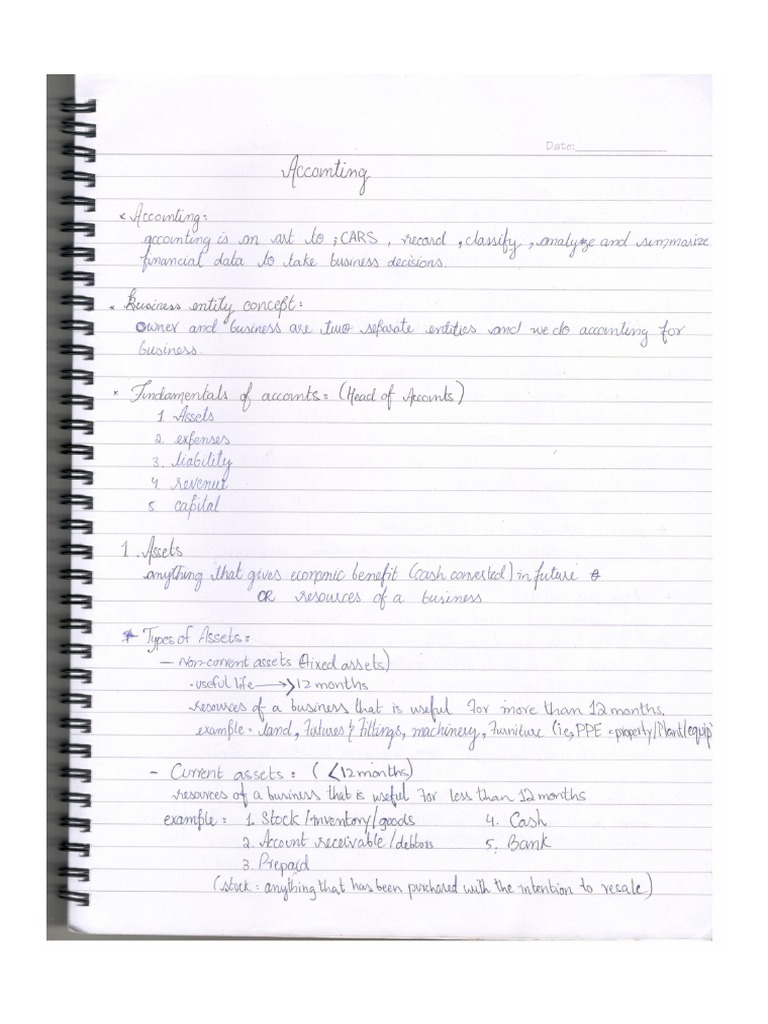 Date:
Accounting
* Accounting:
accounting is an art to ; CARS , record , classify , analyze and summarize
financial data to take business decisions.
* Business entity concept:
Owner and business are two separate entities and we do accounting for
business.
* Fundamentals of accounts: (Head of Accounts)
1. Assets
2. expenses
3. liability
4 revenue
5. capital
1. Assets
anything that gives economic benefit (cash converted) in future
OR resources of a business
* Types of Assets:
— Non-current assets (fixed assets)
· useful life → >12 months
resources of a business that is useful For more than 12 months.
example = land, Fixtures & Fittings, machinery, Furniture (ie, PPE = property/Plant/equip
- Current assets : (<12 months)
resources of a business that is useful For less than 12 months
example : 1. Stock /inventory/goods 4. Cash
2. Account receivable /debtors 5. Bank
3. Prepaid
(stock : anything that has been purchased with the intention to resale)